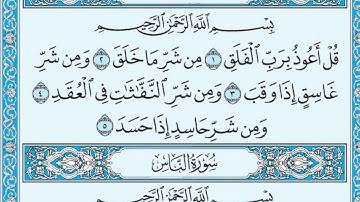 بِسْمِ ٱللَّهِ ٱلرَّحْمَٰنِ ٱلرَّحِيمِ
قُلْ أَعُوذُ بِرَبِّ ٱلْفَلَقِ ١ مِن شَرِّ مَا خَلَقَ ٢ وَمِن شَرِّ
غَاسِقٍ إِذَا وَقَبَ ٣ وَمِن شَرِّ ٱلنَّفَّٰثَٰتِ فِى ٱلْعُقَدِ ٤
وَمِن شَرِّ حَاسِدٍ إِذَا حَسَدَ ٥
سُورَةُ النَّاسِ
بِسْمِ ٱللَّهِ ٱلرَّحْمَٰنِ ٱلرَّحِيمِ